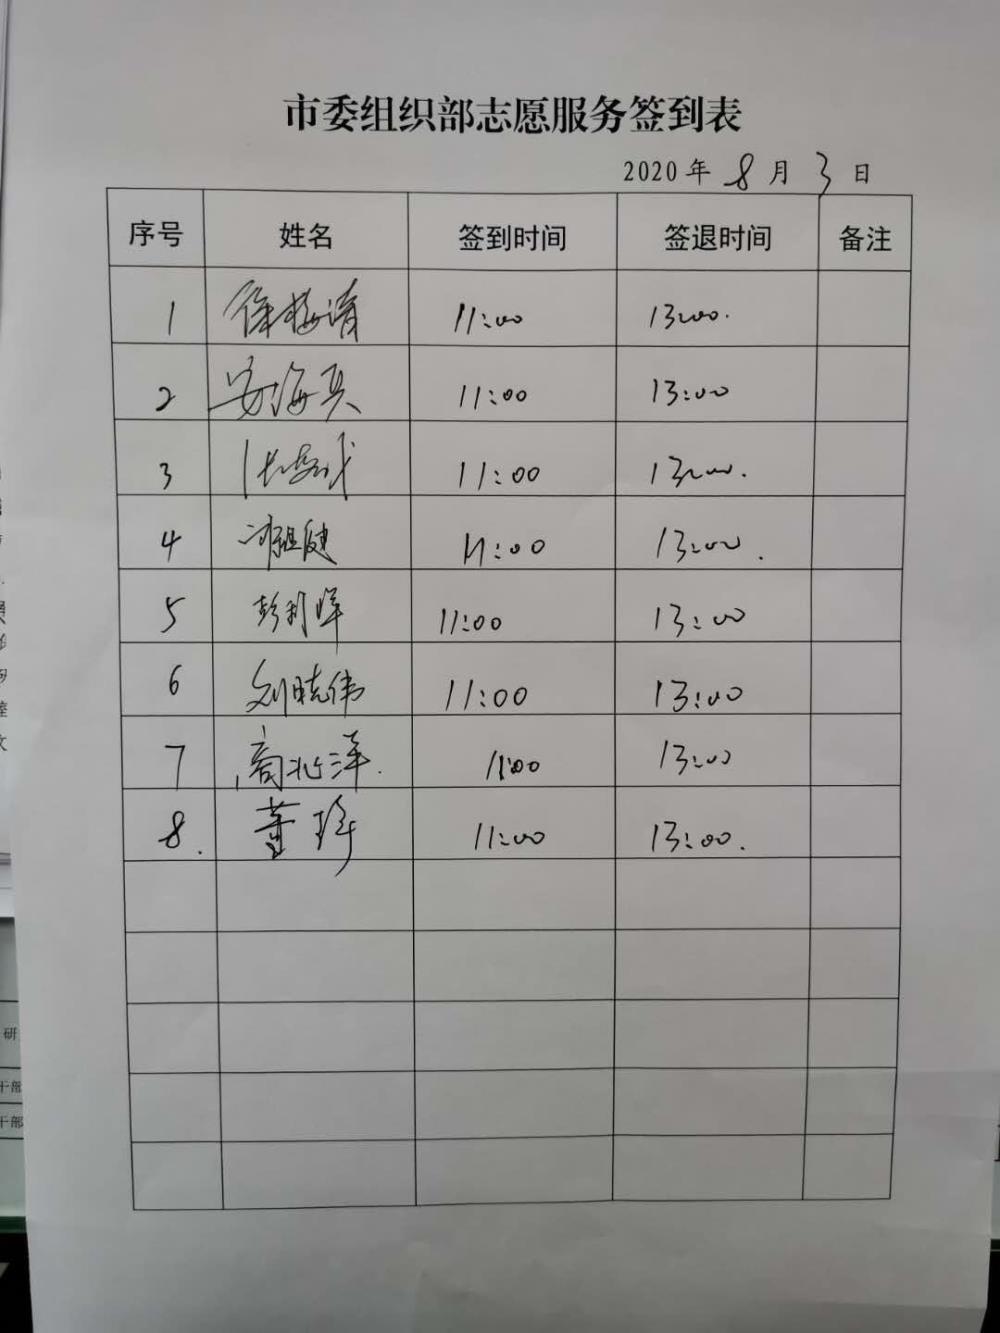 市委组织部志愿服务签到表
2020 年 8 月 3 日
序号 姓名 签到时间 签退时间 备注
1 徐梅清 11:00 13:00.
2 安海兵 11:00 13:00
3 11:00 13:00.
4 11:00 13:00.
5 彭利晖 11:00 13:00
6 刘晓伟 11:00 13:00
7 商兆洋. 11:00 13:00
8. 董玮 11:00 13:00.
研
干部
干部